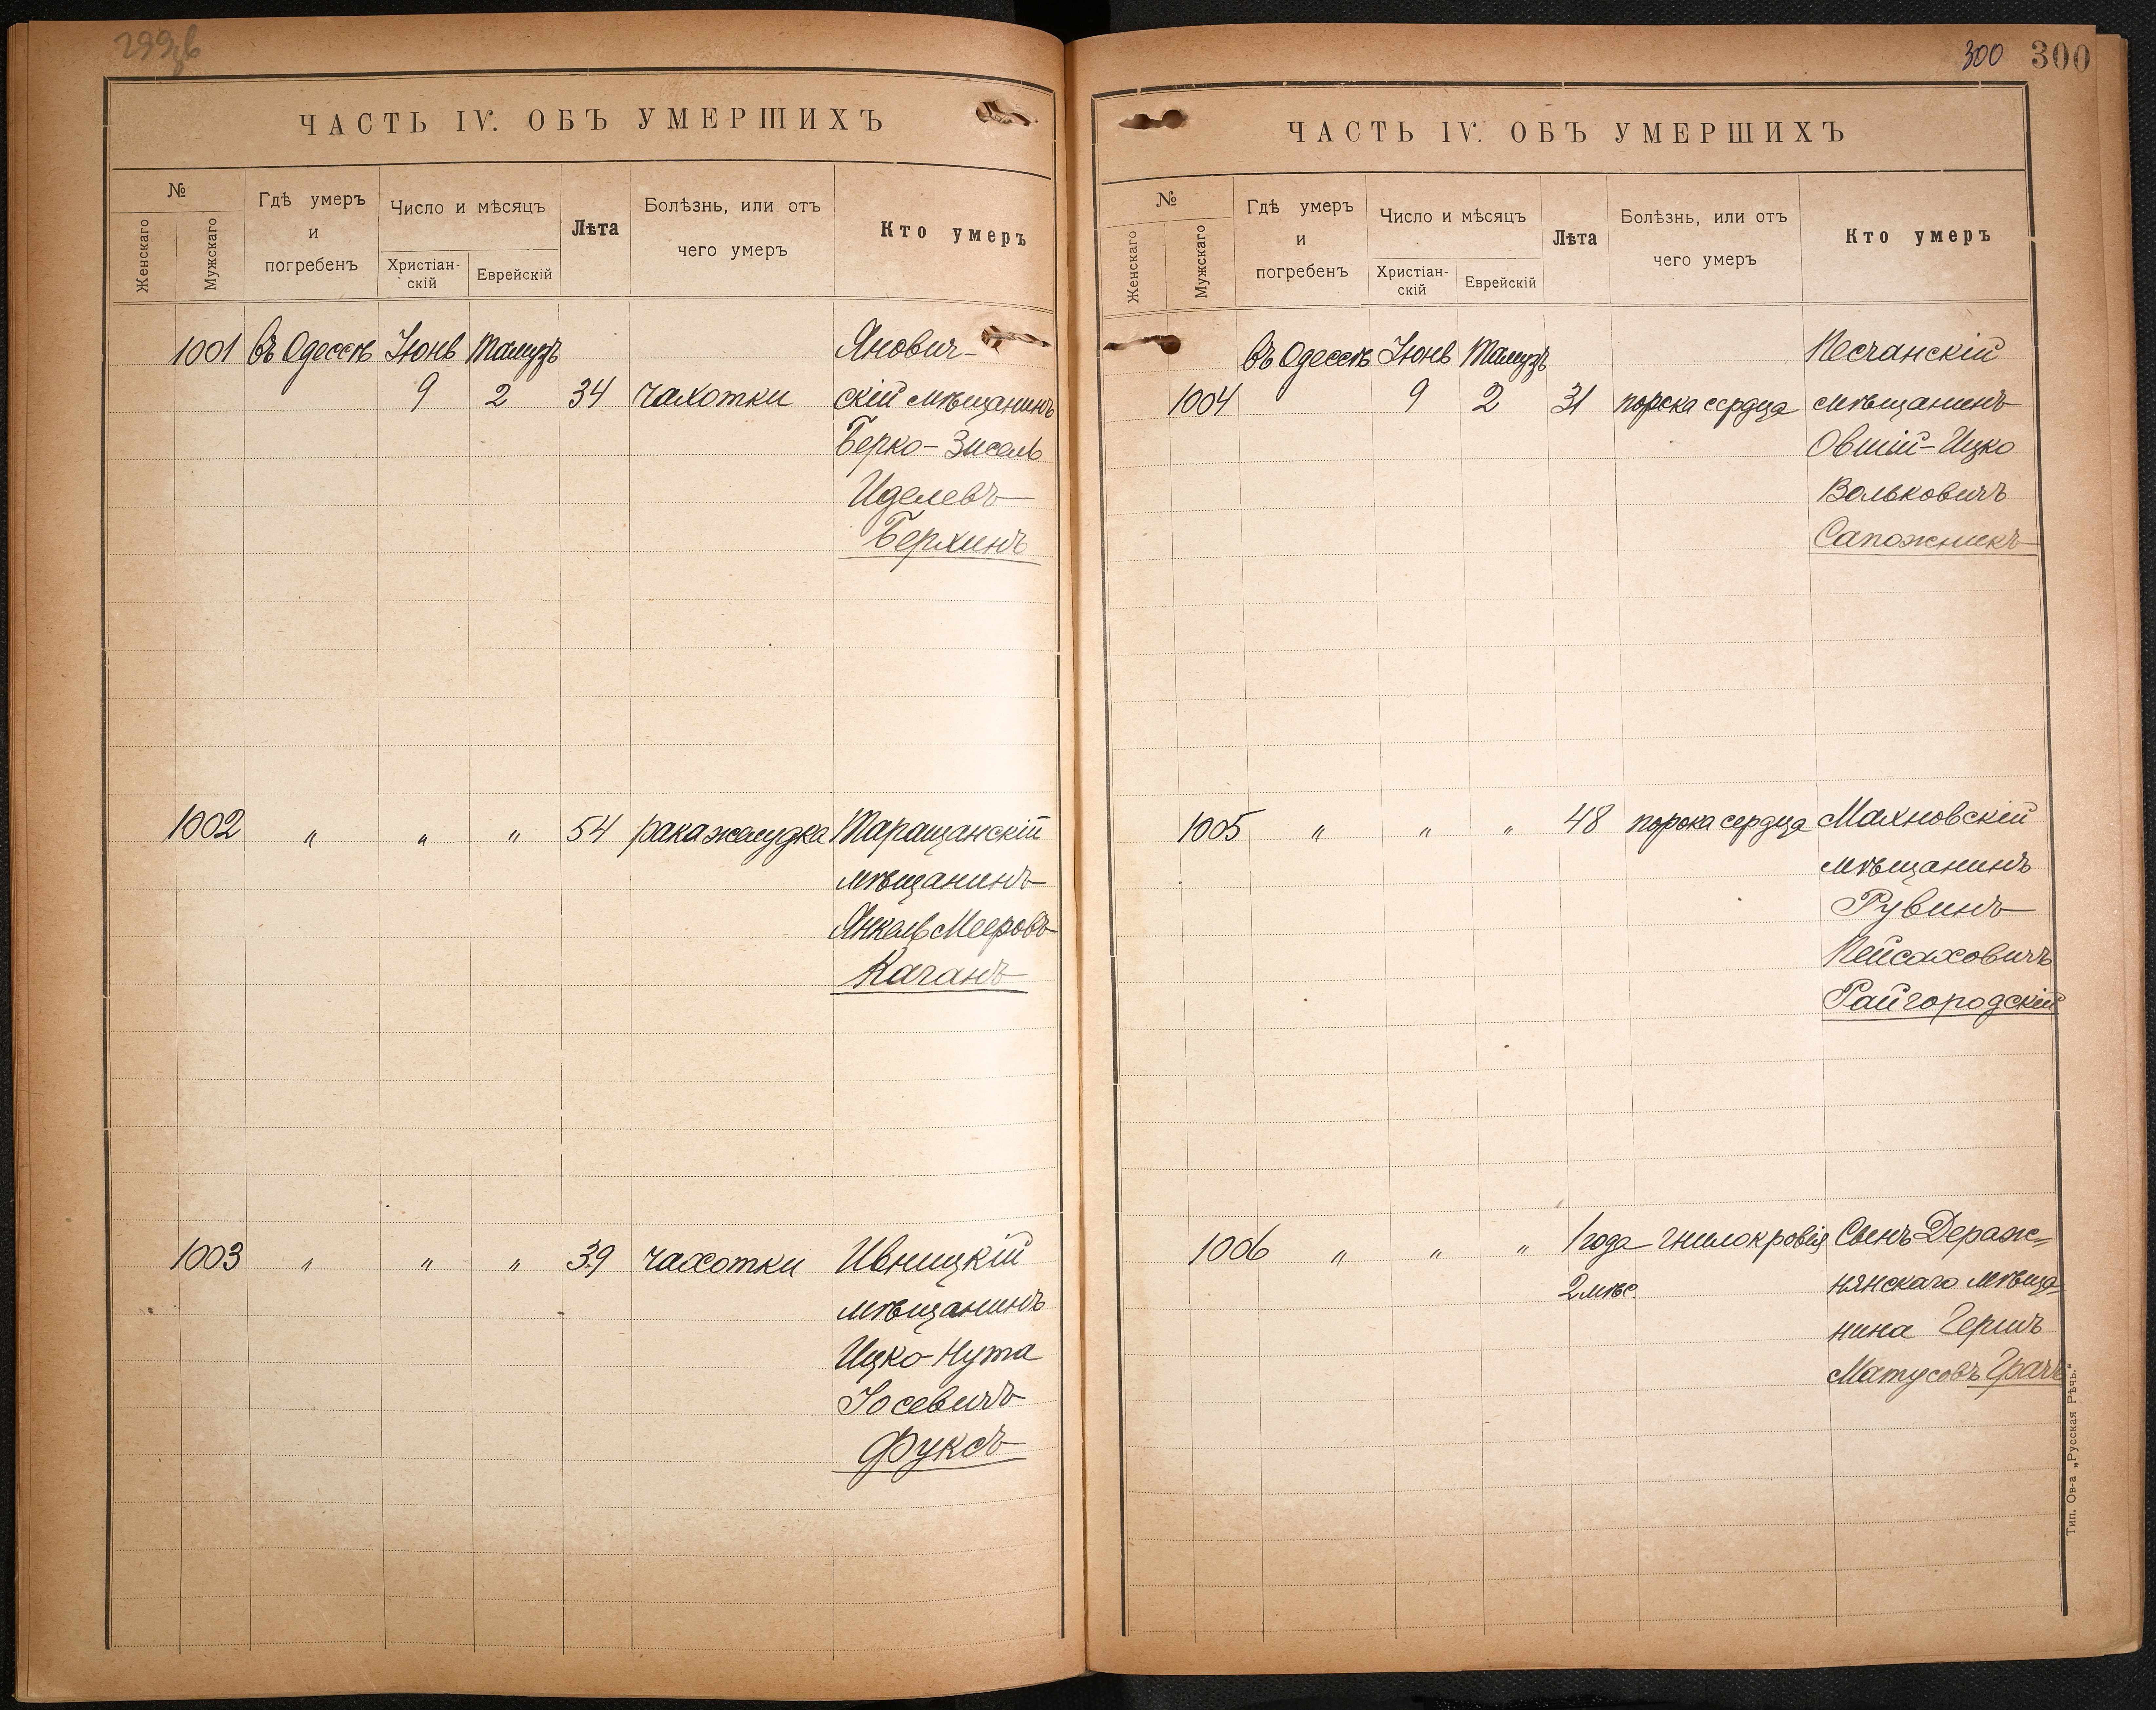 299об
ЧАСТЬ IV. ОБЪ УМЕРШИХЪ
№
Женскаго
Мужскаго
Гдѣ умеръ
и
погребенъ
Число и мѣсяцъ
Христіан-
скій
Еврейскій
Лѣта
Болѣзнь, или отъ
чего умеръ
Кто умеръ
1001 въ Одессѣ Іюнь Тамузъ Янович-
9 2 34 чахотки скій мѣщанинъ
Берко-Зисель
Иделевъ
Берхинъ
1002 „ „ „ 54 рака желудка Таращанскій
мѣщанинъ
Янкель Мееровъ
Каганъ
1003 „ „ „ 39 чахотки Ивницкій
мѣщанинъ
Ицко-Нута
Іосевичъ
Фуксъ
300 300
ЧАСТЬ IV. ОБЪ УМЕРШИХЪ
№
Женскаго
Мужскаго
Гдѣ умеръ
и
погребенъ
Число и мѣсяцъ
Христіан-
скій
Еврейскій
Лѣта
Болѣзнь, или отъ
чего умеръ
Кто умеръ
въ Одессѣ Іюнь Тамузъ Песчанскій
1004 9 2 31 порока сердца мѣщанинъ
Овшій-Ицко
Вольковичъ
Сапожникъ
1005 „ „ „ 48 порока сердца Махновскій
мѣщанинъ
Рувинъ
Пейсаховичъ
Райгородскій
1006 „ „ „ 1 года гнилокровія Сынъ Дераж-
2 мѣс. нянскаго мѣща-
нина Гершъ
Матусовъ Грачъ
Тип. Ов-а „Русская Рѣчь.“